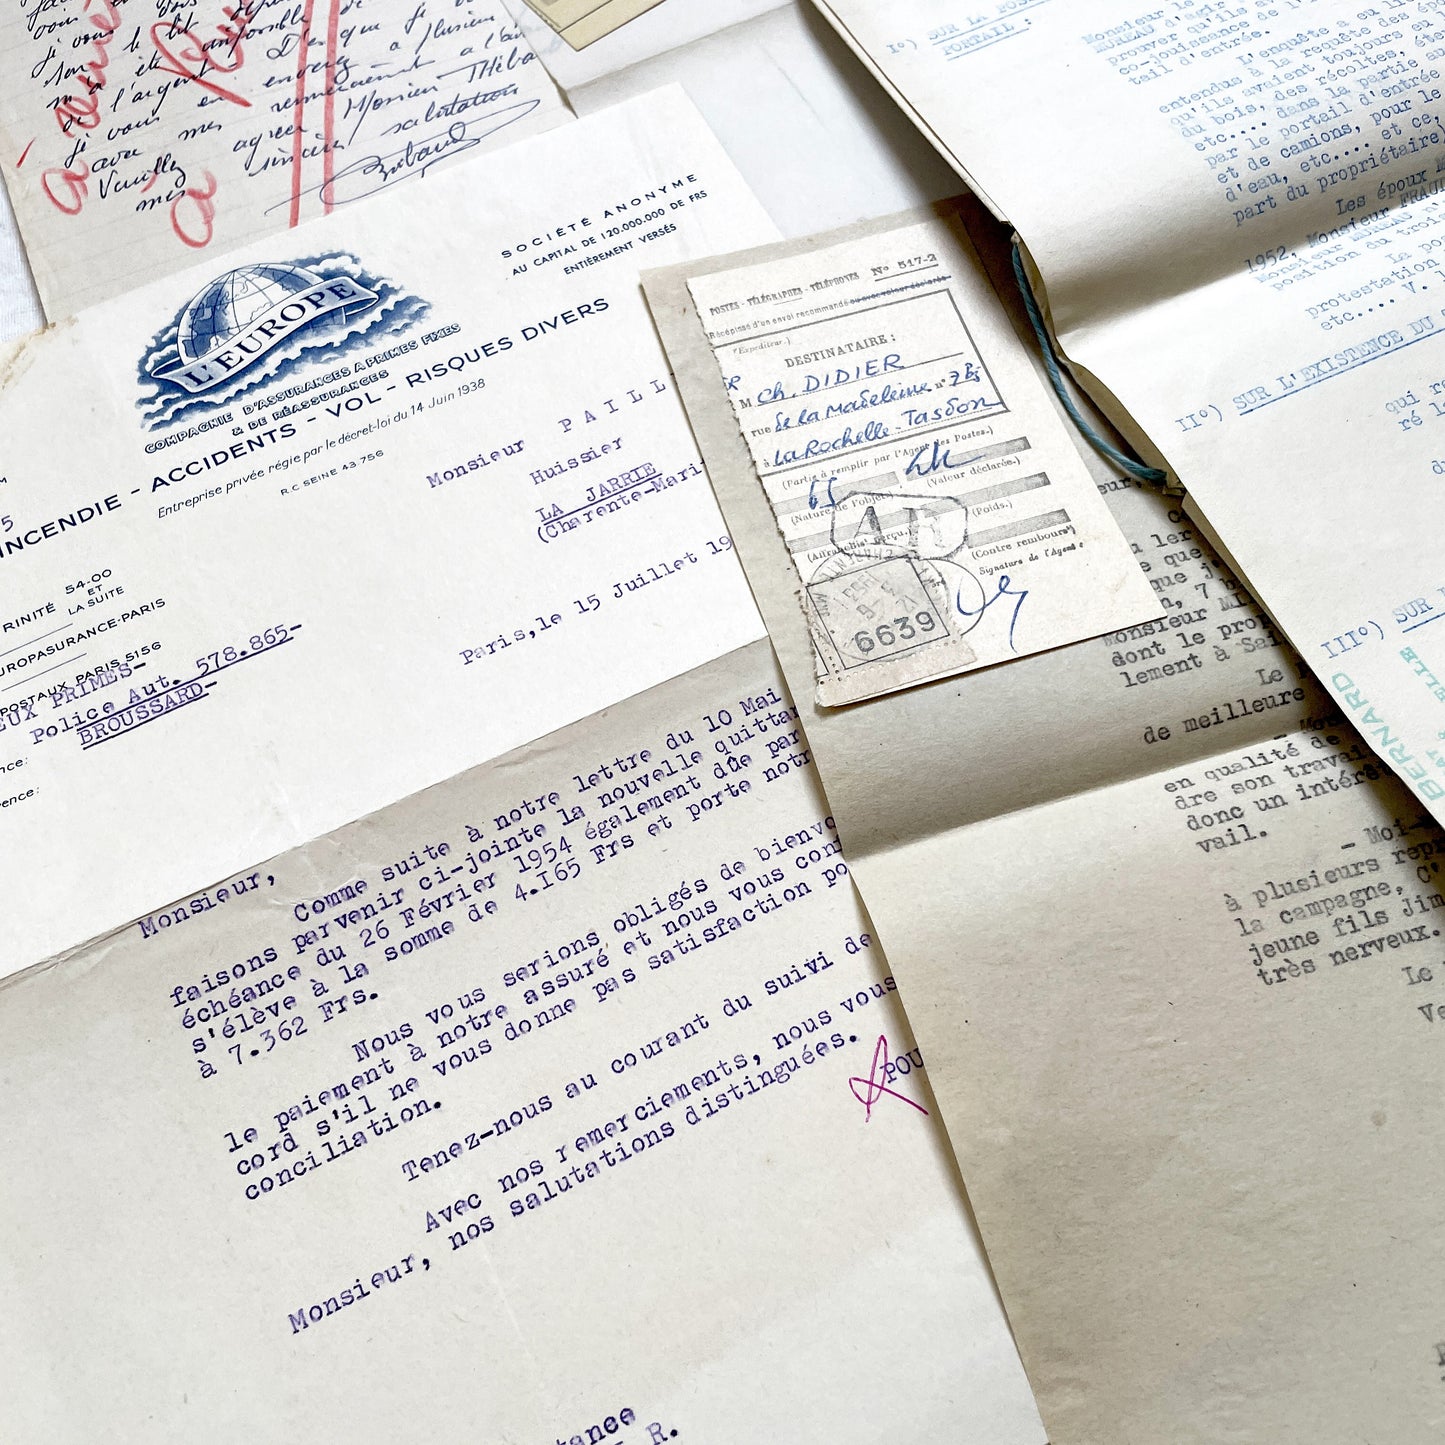 vous le
m'a été impossible de
de l'argent. Dès que je
je vous en enverez à plusieur
avec mes remerciement à l'
Veuillez agréer Monsieur Théba
mes sincères salutation
SOCIÉTÉ ANONYME
AU CAPITAL DE 120.000.000 DE FRS
ENTIÈREMENT VERSÉS
L'EUROPE
COMPAGNIE D'ASSURANCES A PRIMES FIXES
& DE RÉASSURANCES
INCENDIE - ACCIDENTS - VOL - RISQUES DIVERS
Entreprise privée régie par le décret-loi du 14 Juin 1938
R.C. SEINE 43.756
Monsieur PAILL
Huissier
LA JARRIE
(Charente-Marit
Paris, le 15 Juillet 19
RINITÉ 54-00
ET
LA SUITE
UROPASURANCE-PARIS
POSTAUX PARIS 5156
EUX PRIMES-
Police Aut. 578.865-
BROUSSARD-
nce:
rence:
Monsieur,
Comme suite à notre lettre du 10 Mai
faisons parvenir ci-jointe la nouvelle quittan
échéance du 26 Février 1954 également dûe par
s'élève à la somme de 4.165 Frs et porte notr
à 7.362 Frs.
Nous vous serions obligés de bienvo
le paiement à notre assuré et nous vous con
cord s'il ne vous donne pas satisfaction po
conciliation.
Tenez-nous au courant du suivi de
Avec nos remerciements, nous vous
Monsieur, nos salutations distinguées.
POU
tance
R.
POSTES - TÉLÉGRAPHES - TÉLÉPHONES No 517-2
Récépissé d'un envoi recommandé ou avec valeur déclarée
(Expéditeur.)
DESTINATAIRE :
M Ch. DIDIER
rue de la Madeleine n° 7 Bis
à La Rochelle-Tasdon
(Partie à remplir par l'Agent des Postes.)
(Nature de l'objet.) (Valeur déclarée.)
AR
(Affranchist perçu.) (Poids.)
(Contre rembourst)
Signature de l'Agent :
6639
I°) SUR LA POSS
PORTAIL :
Monsieur le
MUREAU d'agir
prouver qu'ils av
co-jouissance de l'
tail d'entrée.
L'enquête a eu li
entendus à la requête des épo
qu'ils avaient toujours eu
du bois, des récoltes, éte
etc.... dans la partie au
par le portail d'entrée
et de camions, pour le
d'eau, etc.... et ce,
part du propriétaire,
Les époux M
1952, Monsieur FRAU
Monsieur MUREAU n'
position du trois
La po
protestation
etc.... V.
II°) SUR L'EXISTENCE DU
qui r
ré la
III°) SUR L
BERNARD
monsieur MI
dont le prop
lement à Sai
de meilleure
en qualité de
dre son travai
donc un intérê
vail.
- Moi-
à plusieurs repr
la campagne, C'
jeune fils Jim
très nerveux.
Le
Ve